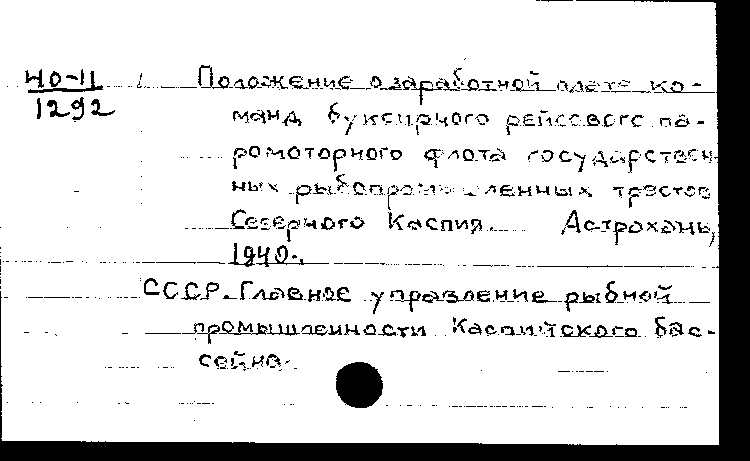 40-11
1292
Положение о заработной плате ко-
манд буксирного рейсового па-
ромоторного флота государствен-
ных рыбопромышленных трестов
Северного Каспия. Астрахань,
1940.
СССР. Главное управление рыбной
промышленности Каспийского бас-
сейна.